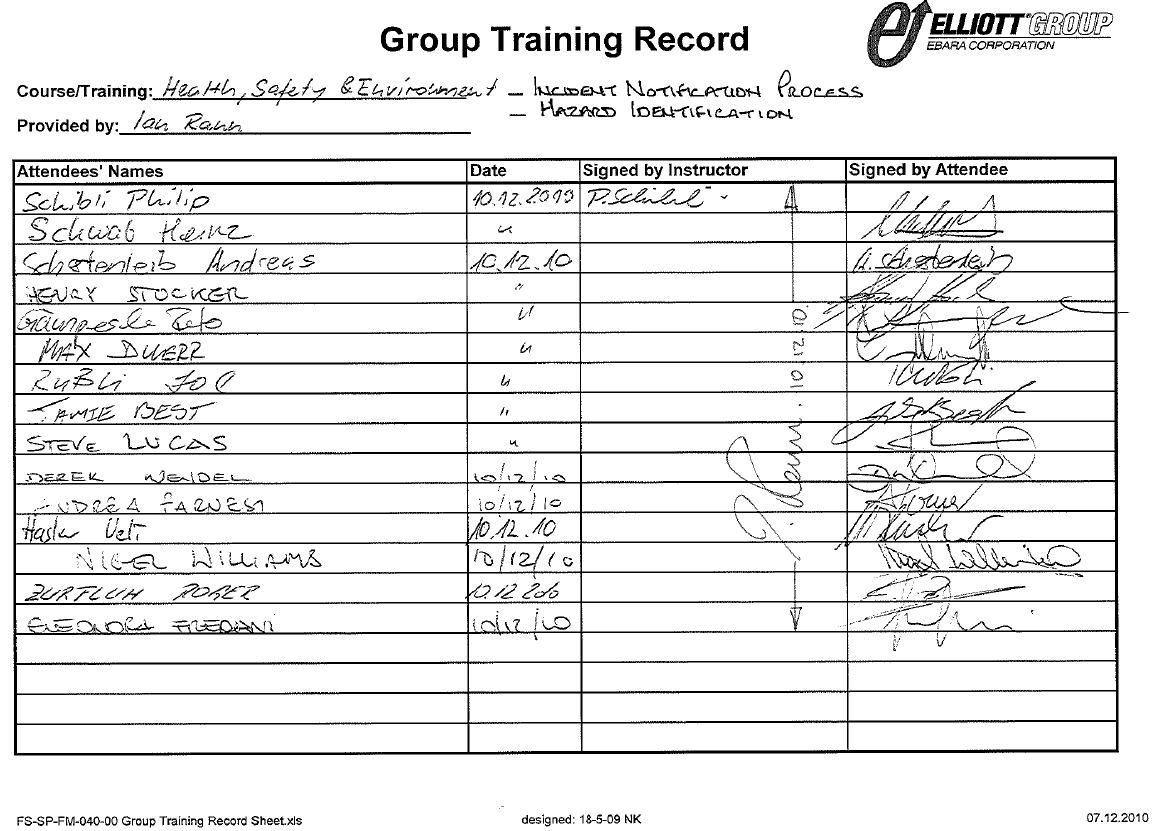 Group Training Record
ELLIOTT GROUP
EBARA CORPORATION
Course/Training: Health, Safety & Environment – INCIDENT NOTIFICATION PROCESS
– HAZARD IDENTIFICATION
Provided by: Ian Rann
Attendees' Names Date Signed by Instructor Signed by Attendee
Schibli Philip 10.12.2010 P. Schibli
Schwab Heinz "
Schetenleib Andreas 10.12.10 A. Schetenleib
HENRY STOCKER "
"
MAX DUERR "
RUBLI "
JAMIE BEST "
STEVE LUCAS "
DEREK WENDEL 10/12/10
ANDREA FARNESI 10/12/10
Hasler Ueli 10.12.10
NIGEL WILLIAMS 10/12/10
ZURFLUH ROGER 10.12
ELEONORA FREDANI 10/12/10
I. Rann. 10.12.10.
FS-SP-FM-040-00 Group Training Record Sheet.xls designed: 18-5-09 NK 07.12.2010